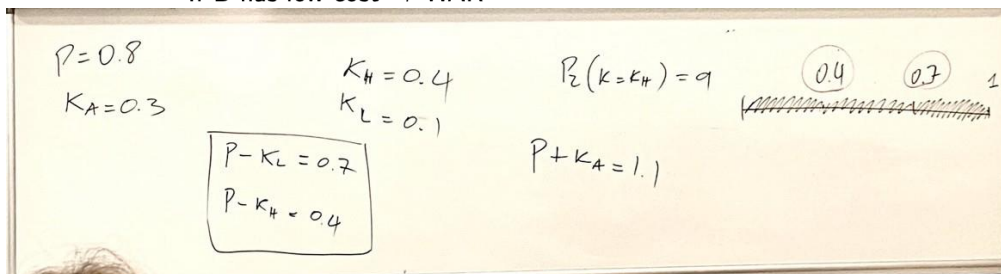 P=0.8
K_A=0.3
K_H=0.4
K_L=0.1
P_r(K=K_H)=q
0.4 0.7 1
P-K_L=0.7
P-K_H=0.4
P+K_A=1.1